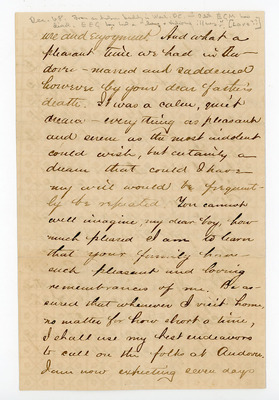 ure and Enjoyment. And what a
pleasant time we had in An-
dover—marred and saddened
however by your dear father's
death. It was a calm, quiet
dream—everything as pleasant
and serene as the most indolent
could wish, but certainly a
dream that could I have
my will would be frequent-
ly be repeated. You cannot
well imagine, my dear boy, how
much pleased I am to learn
that your family have
such pleasant and loving
remembrances of me. Be as-
sured that whenever I visit home,
no matter for how short a time,
I shall use my best endeavors
to call on the folks at Andover.
I am now expecting seven days